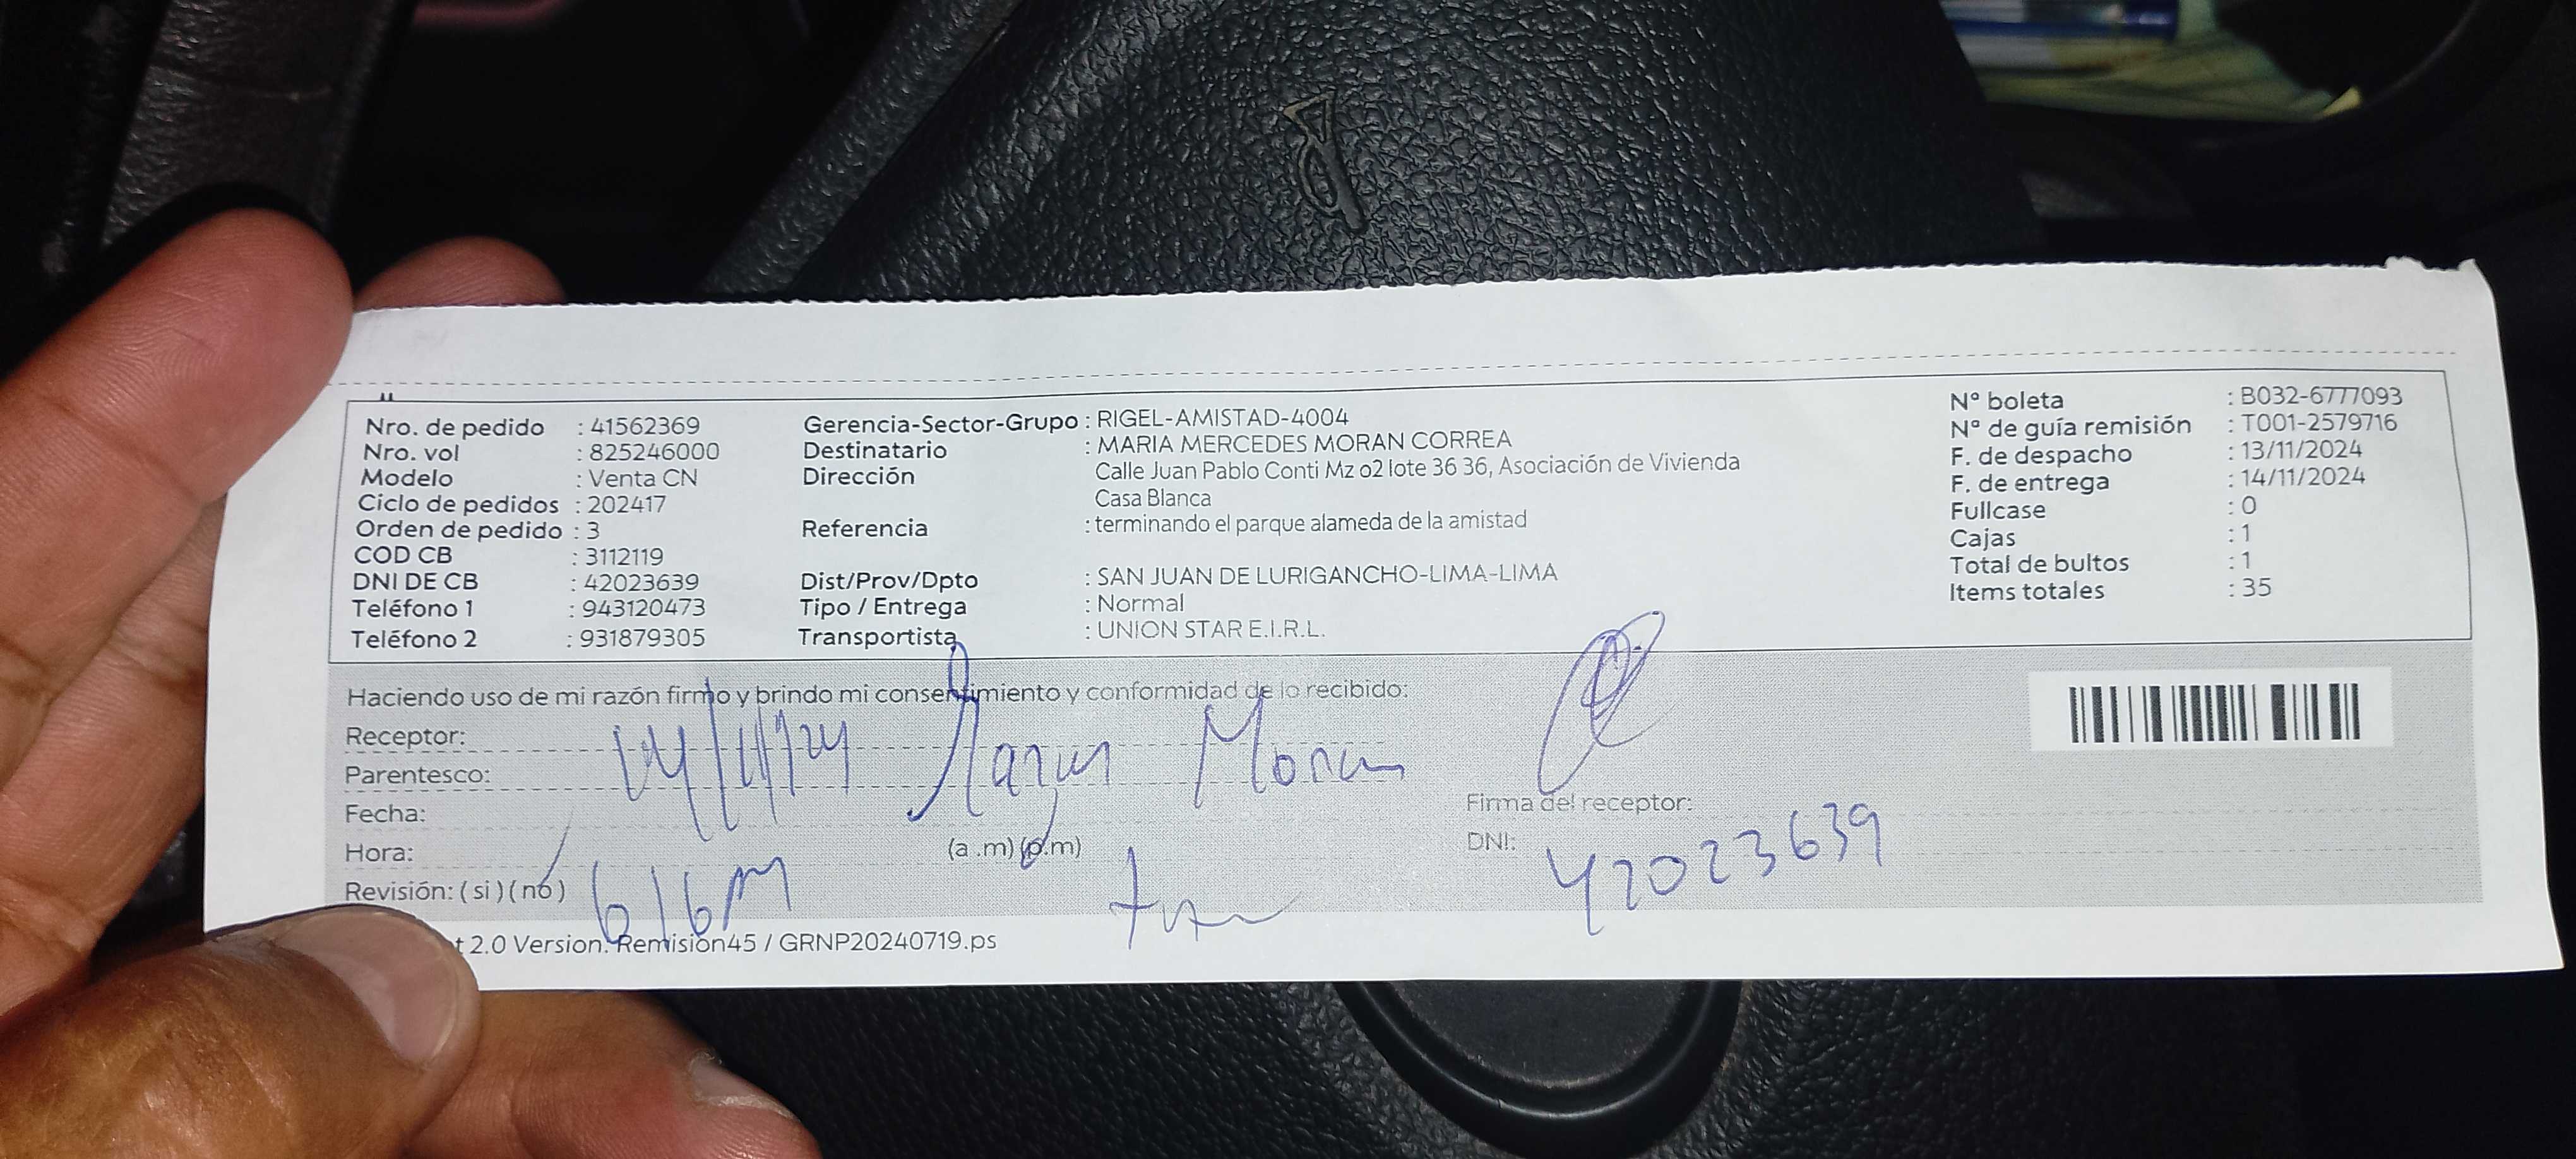 Nro. de pedido : 41562369
Nro. vol : 825246000
Modelo : Venta CN
Ciclo de pedidos : 202417
Orden de pedido : 3
COD CB : 3112119
DNI DE CB : 42023639
Teléfono 1 : 943120473
Teléfono 2 : 931879305
Gerencia-Sector-Grupo : RIGEL-AMISTAD-4004
Destinatario : MARIA MERCEDES MORAN CORREA
Dirección Calle Juan Pablo Conti Mz o2 lote 36 36, Asociación de Vivienda
Casa Blanca
Referencia : terminando el parque alameda de la amistad
Dist/Prov/Dpto : SAN JUAN DE LURIGANCHO-LIMA-LIMA
Tipo / Entrega : Normal
Transportista : UNION STAR E.I.R.L.
N° boleta : B032-6777093
N° de guía remisión : T001-2579716
F. de despacho : 13/11/2024
F. de entrega : 14/11/2024
Fullcase : 0
Cajas : 1
Total de bultos : 1
Items totales : 35
Haciendo uso de mi razón firmo y brindo mi consentimiento y conformidad de lo recibido:
Receptor:
Parentesco: 14/11/24 Moran
Fecha:
Hora: (a .m) (p.m)
Revisión: ( si ) ( no )
Firma del receptor:
DNI: 42023639
2.0 Version. Remision45 / GRNP20240719.ps